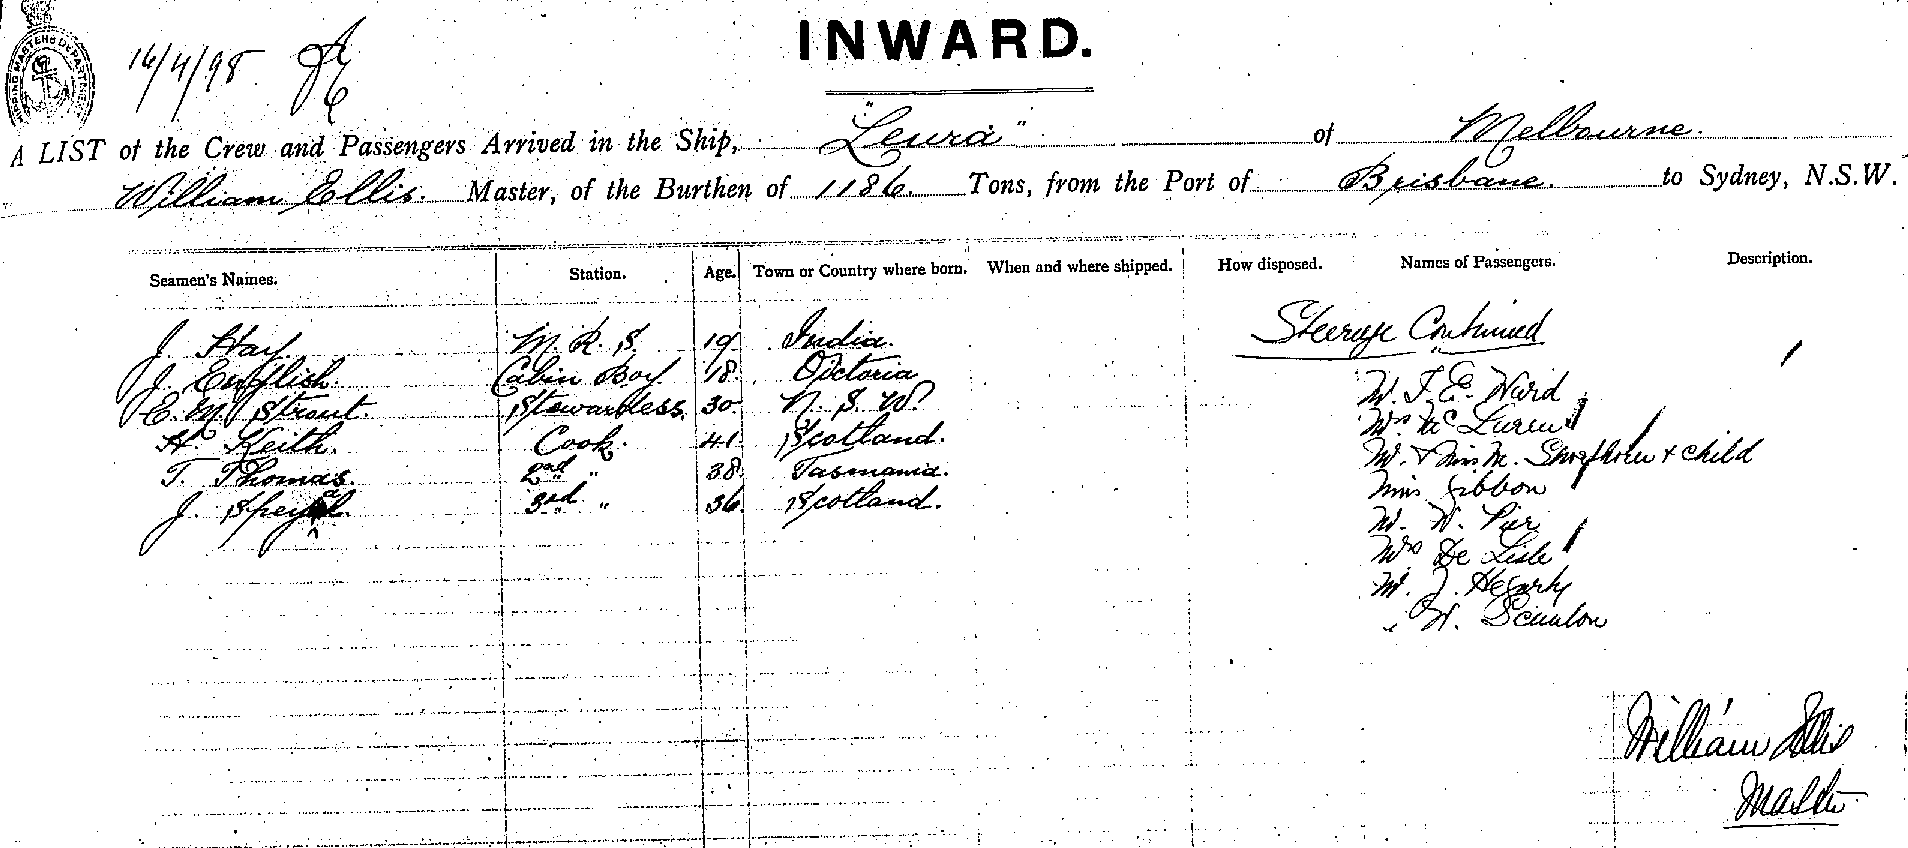 SHIPPING MASTERS DEPARTMENT
16/4/98
INWARD.
A LIST of the Crew and Passengers Arrived in the Ship, "Leura" of Melbourne.
William Ellis. Master, of the Burthen of 1186. Tons, from the Port of Brisbane. to Sydney, N.S.W.
Seamen's Names. Station. Age. Town or Country where born. When and where shipped. How disposed. Names of Passengers. Description.
Steerage Continued
J. Hay. M. R. S. 19 India.
J. English. Cabin Boy. 18. Victoria
M. J. E. Ward
E. M. Strout. Stewardess. 30. N. S. W.
Mrs Mc Laren
H. Keith. Cook. 41. Scotland.
M. & Mrs M. & child
T. Thomas. 2nd " 38. Tasmania.
Miss Gibbon
J. 3rd " 36. Scotland.
M. W.
Mrs De Lisle
M. J. Hegarty
" W. Scanlon
William Ellis
Master